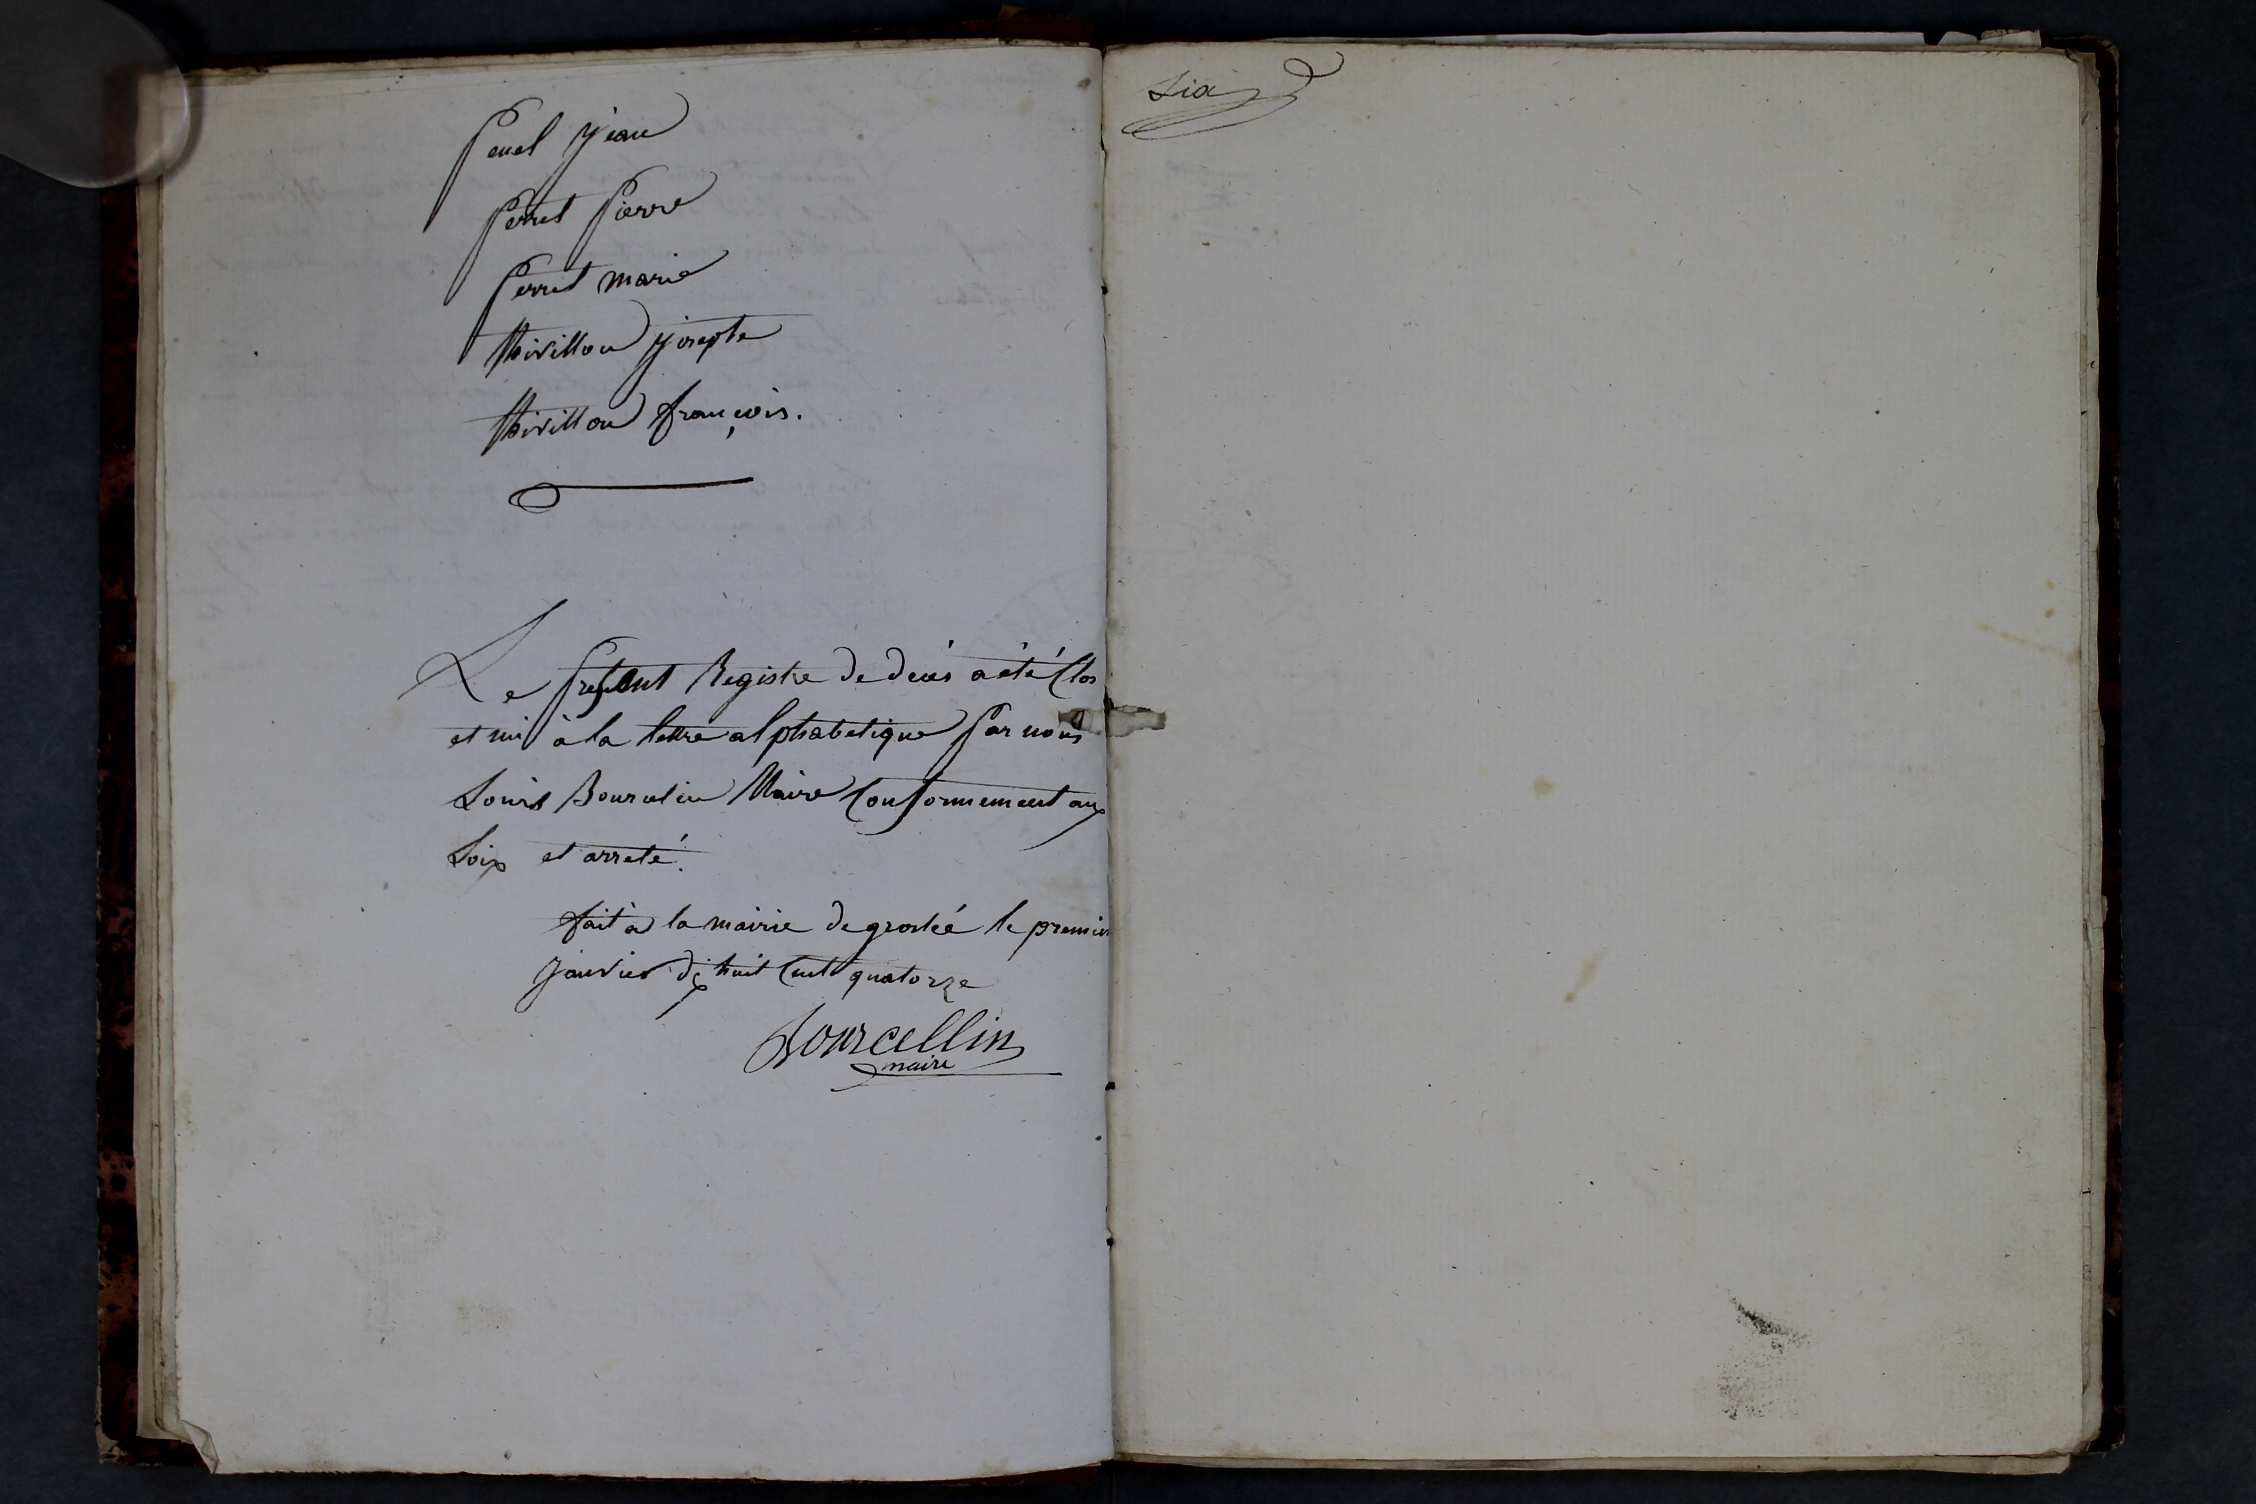 penel jean
perret pierre
perret marie
thivillon josepte
thivillon françois.
Le present Registre de decès a été Clos
et mis à la lettre alphabetique par nous
Louis Bourcelin Maire Conformement aux
Loix et arreté.
fait à la mairie de groslée le premier
janvier dix huit Cent quatorze
Bourcellin
maire